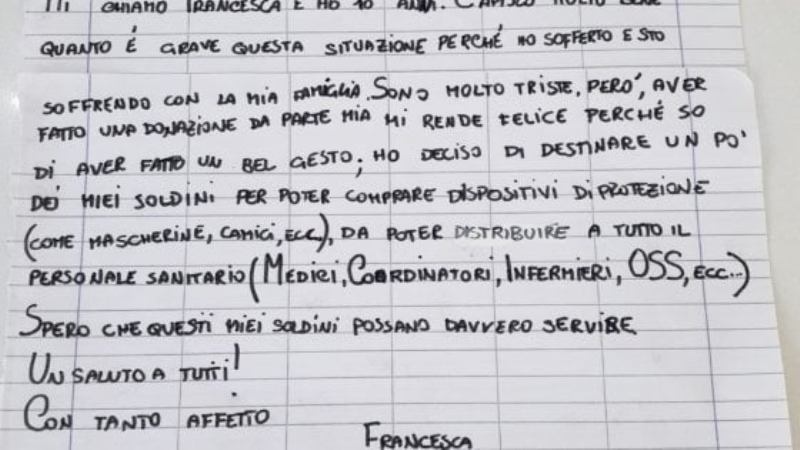 MI CHIAMO FRANCESCA E HO 10 ANNI. CAPISCO MOLTO BENE
QUANTO É GRAVE QUESTA SITUAZIONE PERCHÉ HO SOFFERTO E STO
SOFFRENDO CON LA MIA FAMIGLIA. SONO MOLTO TRISTE, PERO', AVER
FATTO UNA DONAZIONE DA PARTE MIA MI RENDE FELICE PERCHÉ SO
DI AVER FATTO UN BEL GESTO; HO DECISO DI DESTINARE UN PO'
DEI MIEI SOLDINI PER POTER COMPRARE DISPOSITIVI DI PROTEZIONE
(COME MASCHERINE, CAMICI, ECC.), DA POTER DISTRIBUIRE A TUTTO IL
PERSONALE SANITARIO (MEDICI, COORDINATORI, INFERMIERI, OSS, ECC...)
SPERO CHE QUESTI MIEI SOLDINI POSSANO DAVVERO SERVIRE
UN SALUTO A TUTTI!
CON TANTO AFFETTO
FRANCESCA